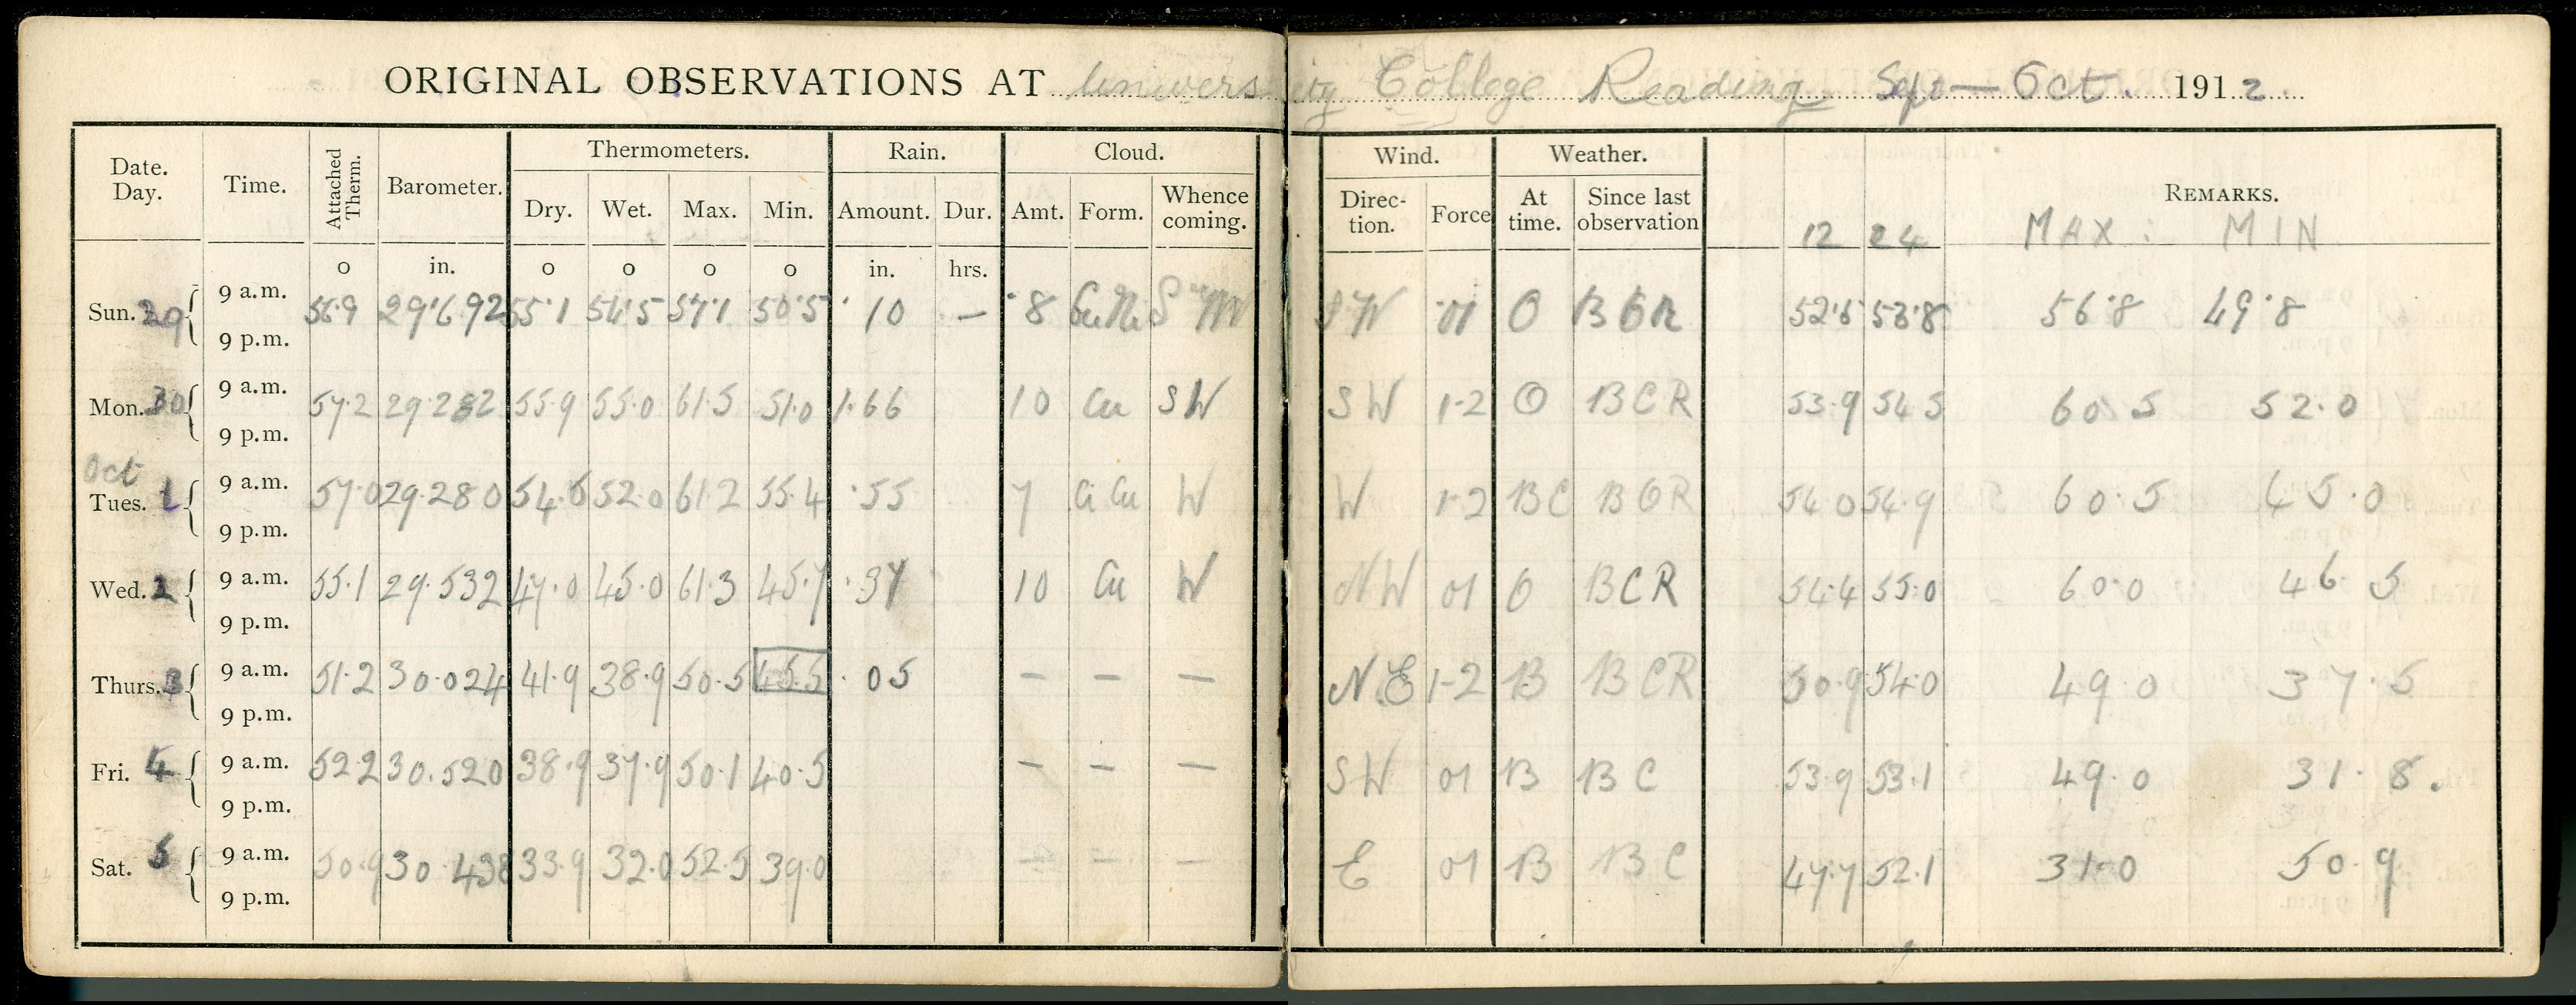 ORIGINAL OBSERVATIONS AT University College Reading Sep — Oct. 1912.
Date. Day. Time. Attached Therm. Barometer. Thermometers. Rain. Cloud. Wind. Weather. REMARKS.
Dry. Wet. Max. Min. Amount. Dur. Amt. Form. Whence coming. Direc- tion. Force At time. Since last observation 12 24 MAX: MIN
o in. o o o o in. hrs.
Sun. 29 9 a.m. 56.9 29.692 55.1 54.5 57.1 50.5 .10 — 8 SW 01 O B O R 52.5 53.8 56.8 49.8
9 p.m.
Mon. 30 9 a.m. 57.2 29.282 55.9 55.0 61.5 51.0 1.66 10 Cu SW SW 1-2 O B C R 53.9 54.5 60.5 52.0
9 p.m.
Oct
Tues. 1 9 a.m. 57.0 29.280 54.5 52.0 61.2 55.4 .55 7 Ci Cu W W 1-2 BC B O R 54.0 54.9 60.5 45.0
9 p.m.
Wed. 2 9 a.m. 55.1 29.532 47.0 45.0 61.3 45.7 .37 10 Cu W NW 01 O B C R 54.4 55.0 60.0 46.5
9 p.m.
Thurs. 3 9 a.m. 51.2 30.024 41.9 38.9 50.5 45.5 .05 — — — N.E 1-2 B B C R 50.9 54.0 49.0 37.5
9 p.m.
Fri. 4 9 a.m. 52.2 30.520 38.9 37.9 50.1 40.5 — — — SW 01 B B C 53.9 53.1 49.0 31.8.
9 p.m.
Sat. 5 9 a.m. 50.9 30.438 33.9 32.0 52.5 39.0 — — — E 01 B B C 47.7 52.1 31.0 50.9
9 p.m.